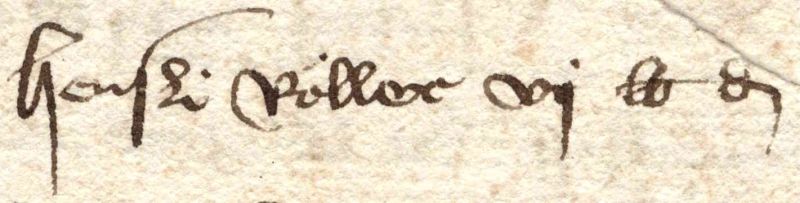 Hensli Röller vij lb d